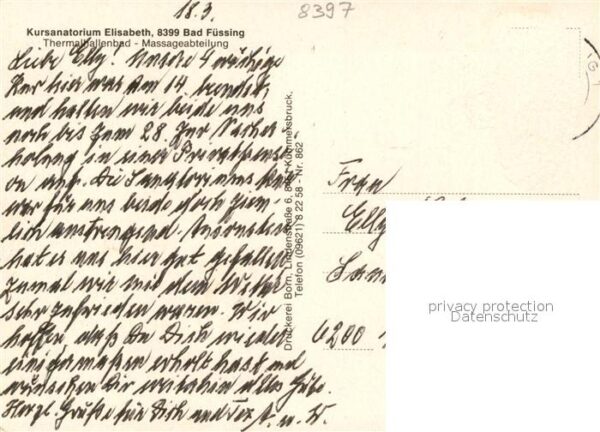 18.3.
8397
Kursanatorium Elisabeth, 8399 Bad Füssing
Thermalhallenbad - Massageabteilung
Liebe Elly! Unsere 4 wöchige
Kur hier war am 14. beendet
und halten wir beide uns
noch bis zum 28. zur Nacher-
holung in einer Privatpensi-
on auf. Die Sanatoriums Kur
war für uns beide doch ziem-
lich anstrengend. Ansonsten
hat es uns hier gut gefallen
zumal wir mit dem Wetter
sehr zufrieden waren. Wir
hoffen, daß Du Dich wieder
einigermaßen erholt hast und
wünschen Dir weiterhin alles Gute.
Herzl. Grüße für Dich und
Druckerei Born, Lindenstraße 6, Kümmersbruck,
Telefon (09621) 8 22 58 - Nr. 862
Frau
Elly
6200
privacy protection
Datenschutz